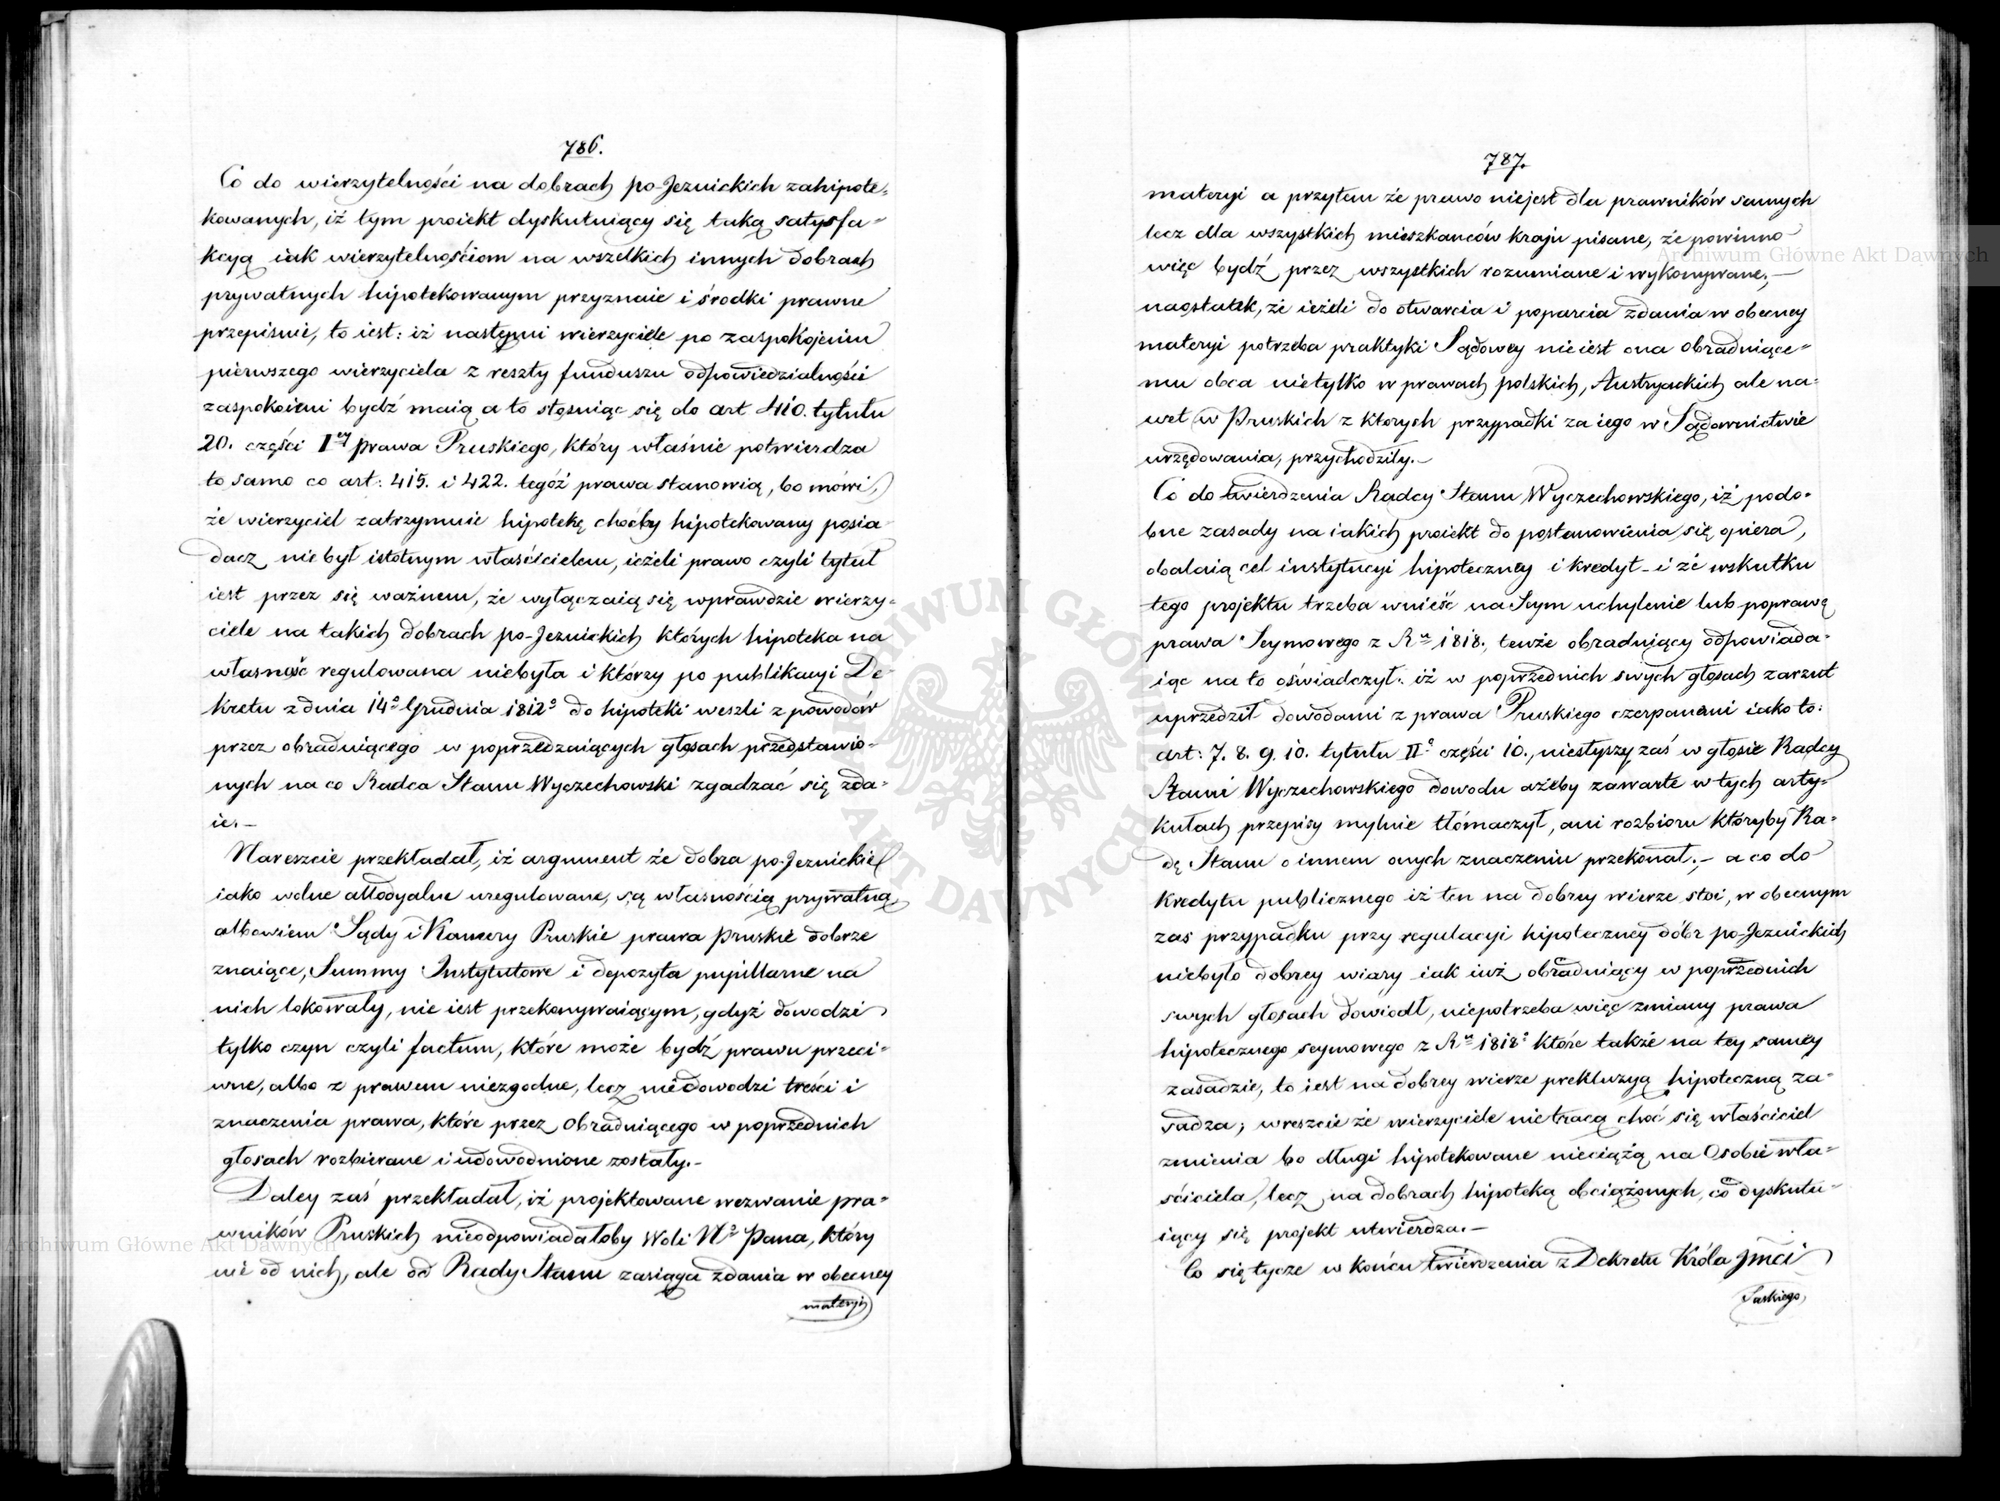 786.
Co do wierzytelności na dobrach po-Jezuickich zahipote-
kowanych, iż tym proiekt dyskutuiący się taką satysfa-
kcyą iak wierzytelnościom na wszelkich innych dobrach
prywatnych hipotekowanym przyznaie i środki prawne
przepisuie, to iest: iż następni wierzyciele po zaspokojeniu
pierwszego wierzyciela z reszty funduszu odpowiedzialności
zaspokoieni bydź maią a to stosuiąc się do art 410. tytułu
20. części Iey prawa Pruskiego, który właśnie potwierdza
to samo co art: 415. i 422. tegóż prawa stanowią, bo mówi,
że wierzyciel zatrzymuie hipotekę choćby hipotekowany posia-
dacz niebył istotnym właścicielem, ieżeli prawo czyli tytuł
iest przez się ważnem, że wyłączaią się wprawdzie wierzy-
ciele na takich dobrach po-Jezuickich których hipoteka na
własność regulowana niebyła i którzy po publikacyi De-
kretu z dnia 14o Grudnia 1812o do hipoteki weszli z powodów
przez obraduiącego w poprzedzaiących głosach przedstawio-
nych na co Radca Stanu Wyczechowski zgadzać się zda-
ie.-
Nareszcie przekładał, iż argument że dobra po-Jezuickie
iako wolne allodyalne uregulowane, są własnością prywatną
albowiem Sądy i Kamery Pruskie prawa pruskie dobrze
znaiące, Summy Instytutowe i depozyta pupillarne na
nich lokowały, nie iest przekonywaiącym, gdyż dowodzi
tylko czyn czyli factum, które może bydź prawu przeci-
wne, albo z prawem niezgodne, lecz niedowodzi treści i
znaczenia prawa, które przez obraduiącego w poprzednich
głosach rozbierane i udowodnione zostały.-
Daley zaś przekładał, iż projektowane wezwanie pra-
wników Pruskich nieodpowiadałoby Woli No Pana, który
nie od nich, ale od Rady Stanu zasiąga zdania w obecney
materyi
787.
materyi a przytem że prawo niejest dla prawników samych
lecz dla wszystkich mieszkanców kraju pisane, że powinno
więc bydź przez wszystkich rozumiane i wykonywane,-
naostatek, że ieżeli do otwarcia i poparcia zdania w obecney
materyi potrzeba praktyki Sądowey nieiest ona obraduiące-
mu obca nietylko w prawach polskich, Austryackich ale na-
wet w Pruskich z ktorych przypadki za iego w Sądownictwie
urzędowania, przychodziły.-
Co do twierdzenia Radcy Stanu Wyczechowskiego, iż podo-
bne zasady na iakich proiekt do postanowienia się opiera,
obalaią cel instytucyi hipoteczney i kredyt - i że wskutku
tego projektu trzeba wnieść na Seym uchylenie lub poprawę
prawa Seymowego z Ru 1818., tenże obraduiący odpowiada-
iąc na to oświadczył: iż w poprzednich swych głosach zarzut
uprzedził dowodami z prawa Pruskiego czerpanemi iako to:
art: 7. 8. 9. 10. tytułu IIo części 10., niesłyszy zaś w głosie Radcy
Stanu Wyczechowskiego dowodu ażeby zawarte w tych arty-
kułach przepisy mylnie tłómaczył, ani rozbioru któryby Ra-
dę Stanu o innem onych znaczeniu przekonał;- a co do
kredytu publicznego iż ten na dobrey wierze stoi, w obecnym
zaś przypadku przy regulacyi hipoteczney dóbr po-Jezuickich
niebyło dobrey wiary iak iuż obraduiący w poprzednich
swych głosach dowiodł, niepotrzeba więc zmiany prawa
hipotecznego seymowego z Ru 1818o które także na tey samey
zasadzie, to iest na dobrey wierze prekluzyą hipoteczną za-
sadza; wreszcie że wierzyciele nie tracą choć się właściciel
zmienia bo długi hipotekowane nieciążą na Osobie wła-
ściciela, lecz na dobrach hipoteką obciążonych, co dyskutu-
iący się projekt utwierdza.-
Co się tycze w końcu twierdzenia z Dekretu Króla Jmci
Saskiego,
Archiwum Główne Akt Dawnych